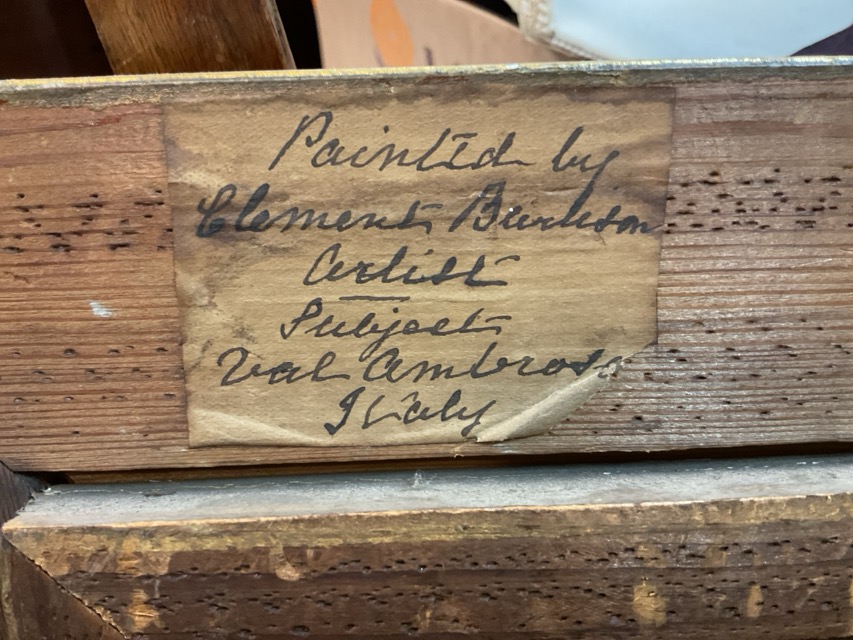 Painted by
Clement Burlison
Artist
Subject
Val Ambrosa
Italy